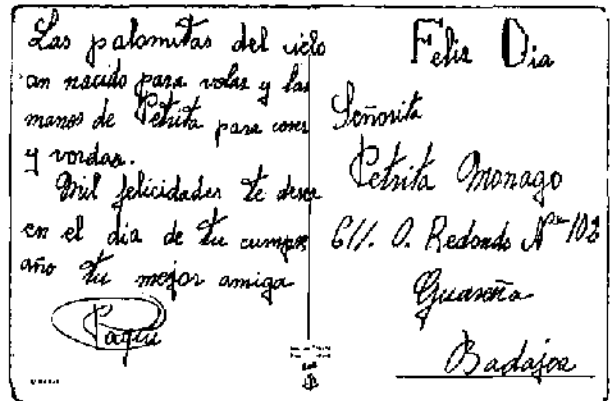 Las palomitas del cielo
an nacido para volar y las
manos de Petrita para coser
y vordar.
Mil felicidades te desea
en el dia de tu cumple
año tu mejor amiga
Paqui
Feliz Dia
Señorita
Petrita Monago
C/. O. Redondo Nº 102
Guareña
Badajoz